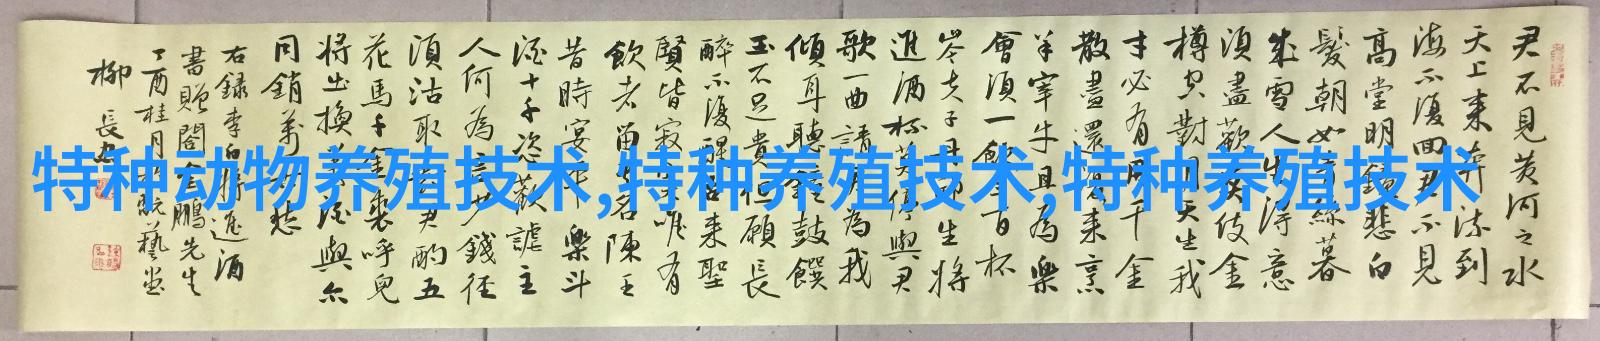 君不見黃河之水
天上来奔流到
海不復回君不見
高堂明鏡悲白
髮朝如青絲暮
成雪人生得意
須盡歡莫使金
樽空對月天生我
才必有用千金
散盡還復来烹
羊宰牛且為樂
會須一飲三百杯
岑夫子丹生將
進酒杯莫停與君
歌一曲請君為我
傾耳聽鼓饌
玉不足貴但願長
醉不復醒古来聖
賢皆寂唯有
飲者留名陳王
昔時宴平樂斗
酒十千恣歡謔主
人何為言少錢徑
須沽取君酌五
花馬千金裘呼兒
將出換美酒與尔
同銷萬古愁
右録李白將進酒
書贈閣金鵬先生
丁酉桂月藝堂
柳長
特种动物养殖技术,特种养殖技术,特种养殖技术